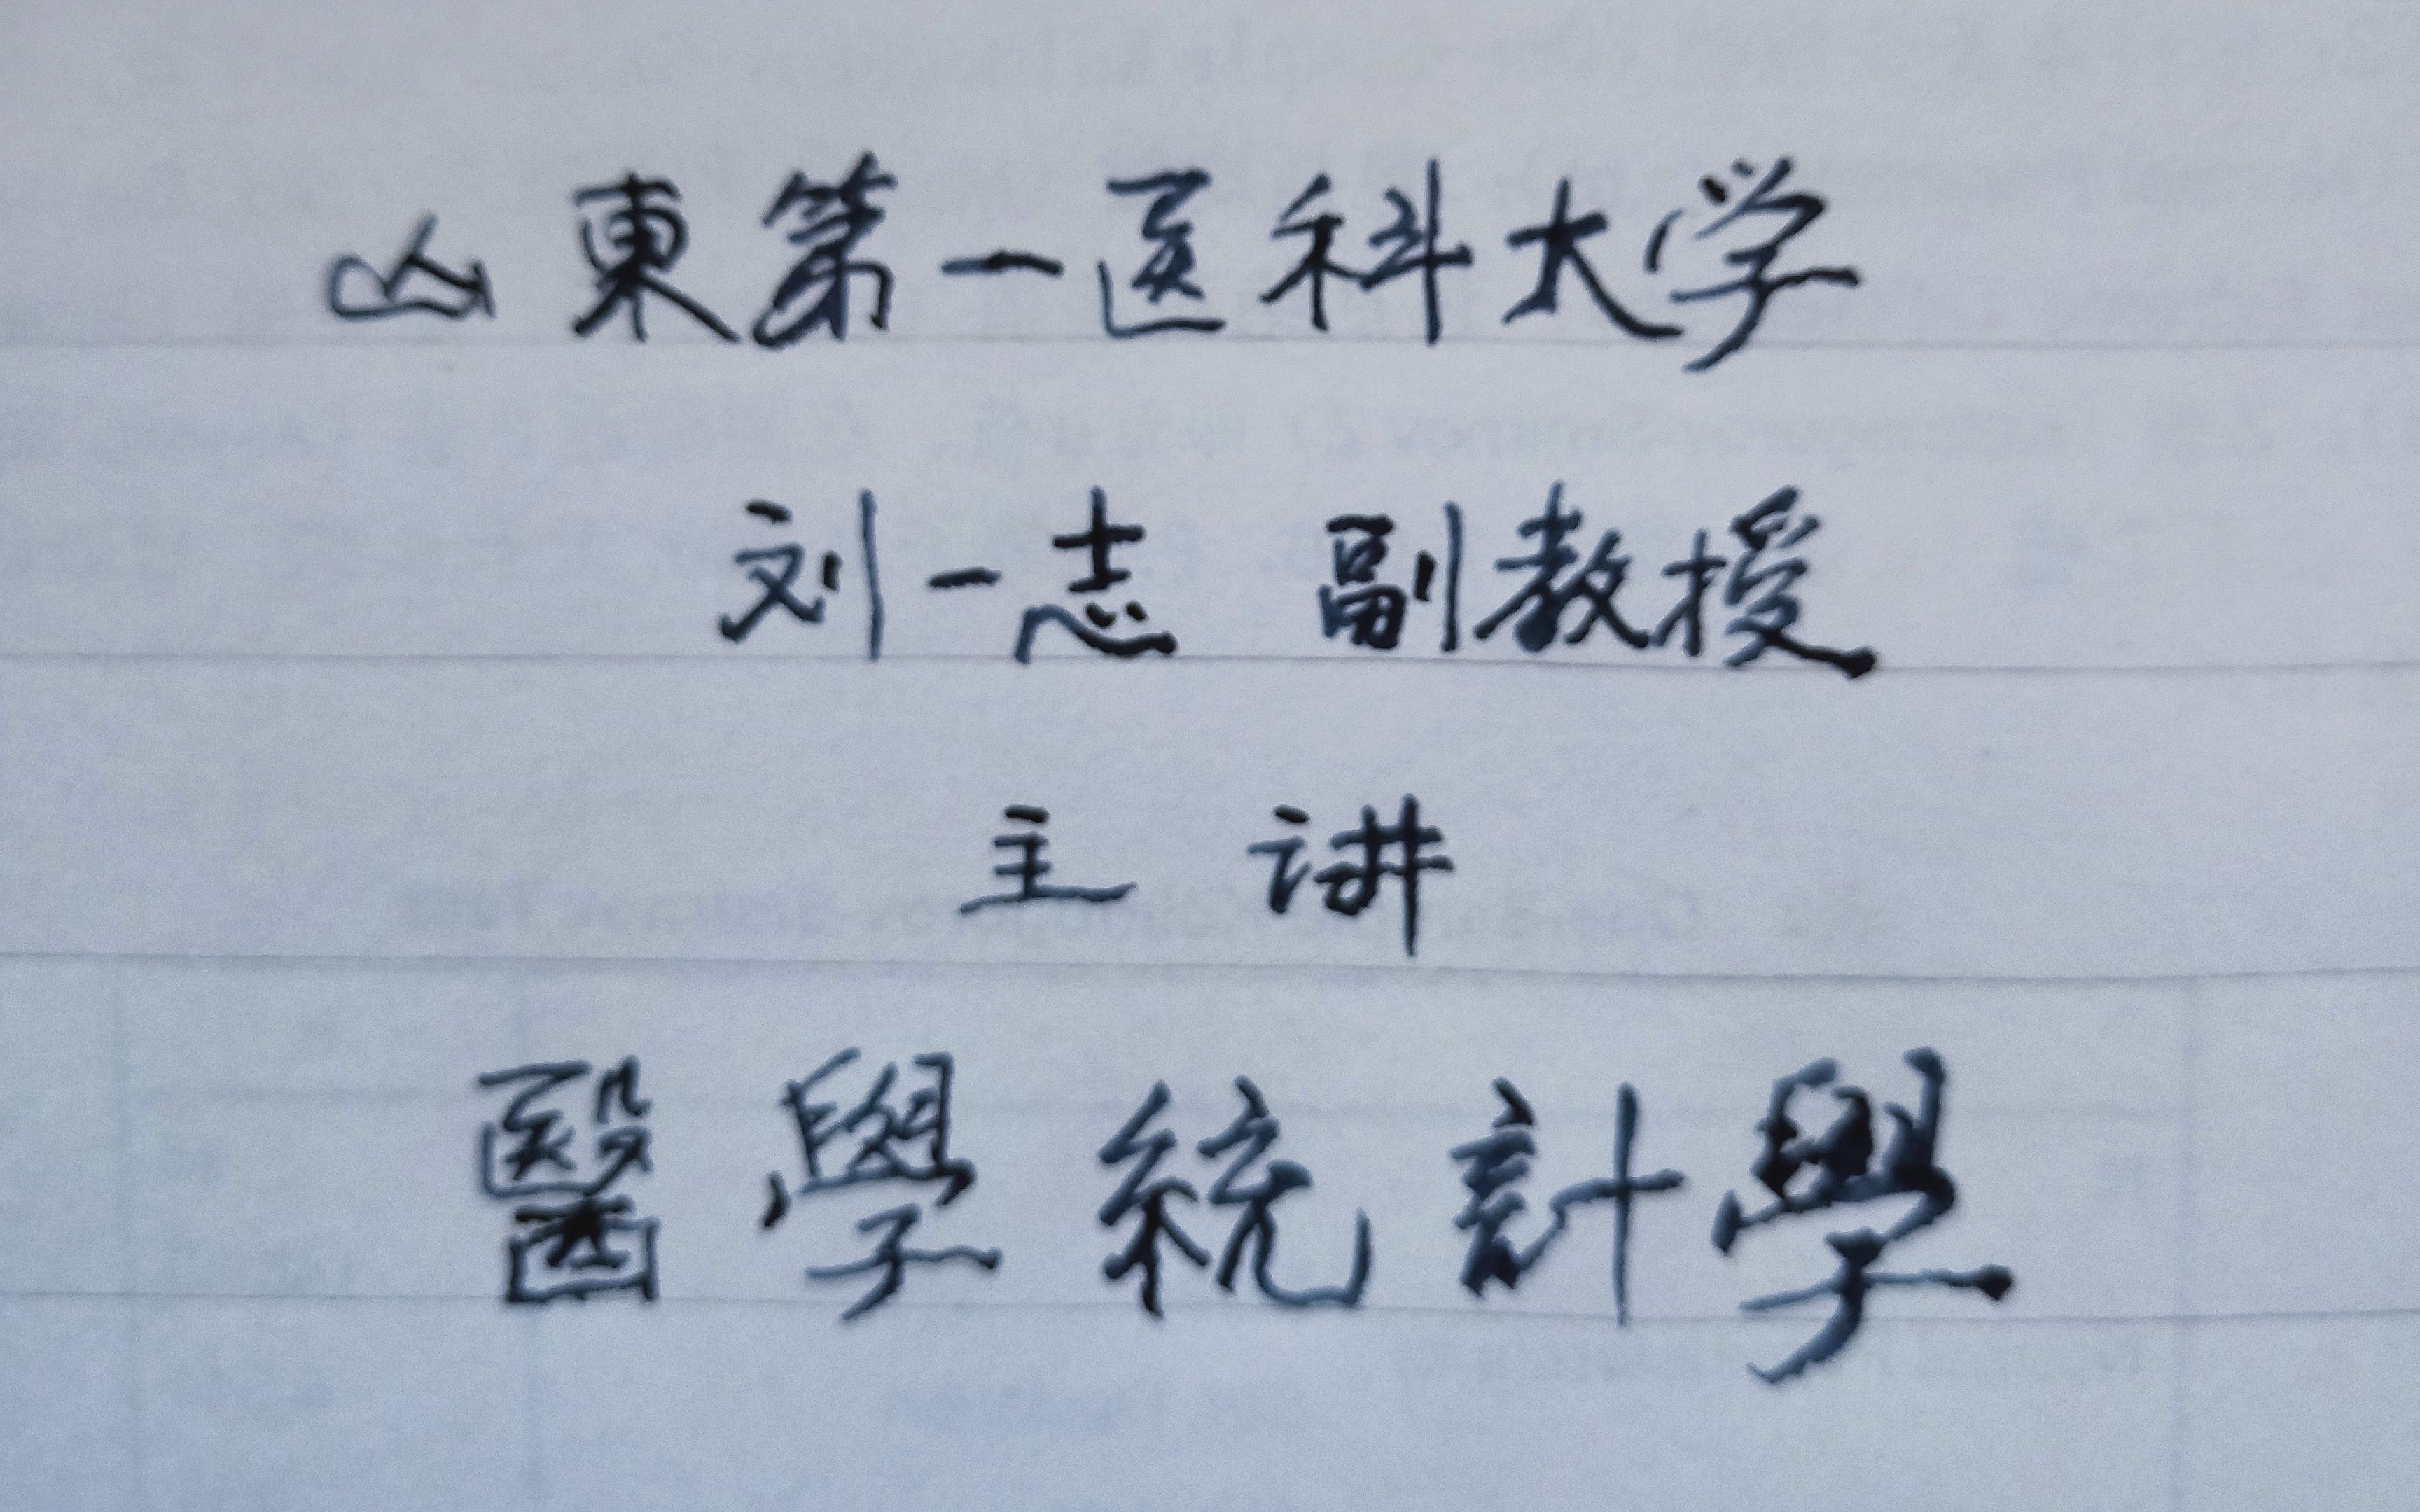 山東第一医科大学
刘一志 副教授
主讲
醫學統計學